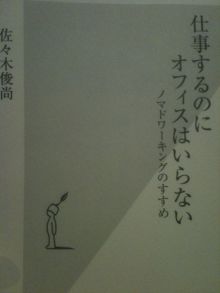 仕事するのに
オフィスはいらない
ノマドワーキングのすすめ
佐々木俊尚